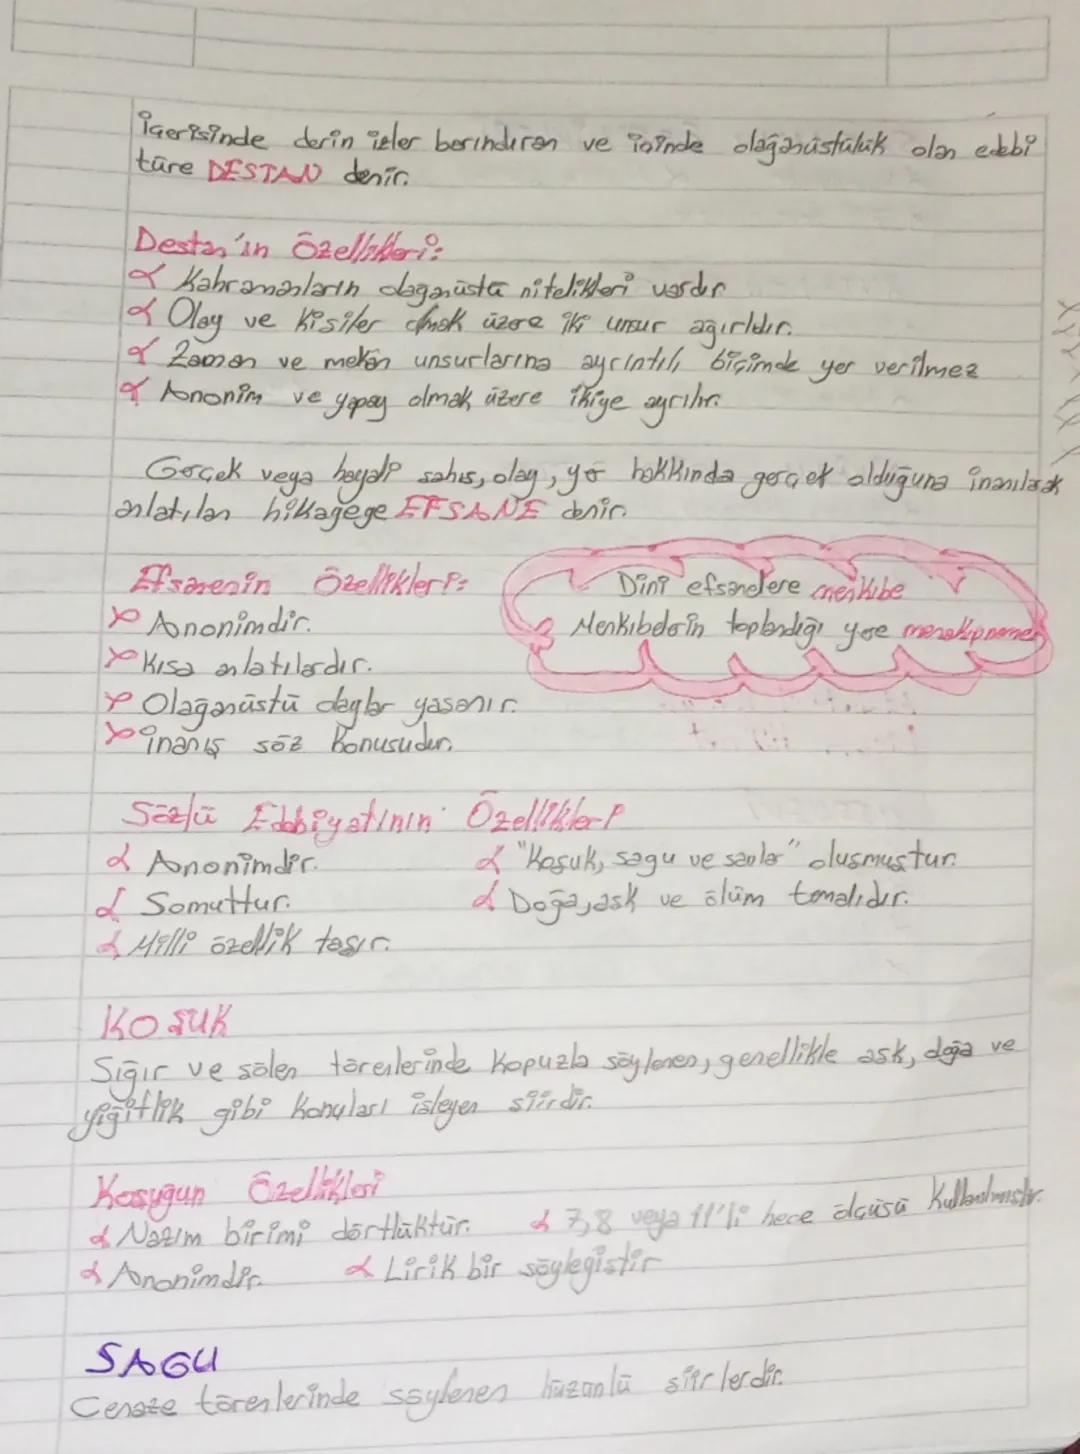 İçerisinde derin izler barındıran ve içinde olağanüstülük olan edebi
türe DESTAN denir.
Destan'ın Özellikleri:
Kahramanların olağanüstü nitelikleri vardır
Olay ve kişiler olmak üzere iki unsur ağırlıdır.
Zaman ve mekân unsurlarına ayrıntılı biçimde yer verilmez
Anonim ve yapay olmak üzere ikiye ayrılır.
Gerçek veya hayali şahıs, olay, yer hakkında gerçek olduğuna inanılarak
anlatılan hikayeye EFSANE denir.
Efsanenin Özellikleri:
Anonimdir.
Kısa anlatılardır.
Olağanüstü olaylar yaşanır.
İnanış söz konusudur.
Dini efsanelere menkıbe
Menkıbelerin toplandığı yere menakıpname
Sözlü Edebiyatının Özellikleri
Anonimdir.
Somuttur.
Milli özellik taşır.
"Koşuk, sagu ve savlar" oluşmuştur.
Doğa, aşk ve ölüm temalıdır.
KOŞUK
Sığır ve şölen törenlerinde kopuzla söylenen, genellikle aşk, doğa ve
yiğitlik gibi konuları işleyen şiirdir.
Koşuğun Özellikleri
Nazım birimi dörtlüktür. 7,8 veya 11'li hece ölçüsü kullanılmıştır.
Anonimdir. Lirik bir söyleyiştir
SAGU
Cenaze törenlerinde söylenen hüzünlü şiirlerdir.